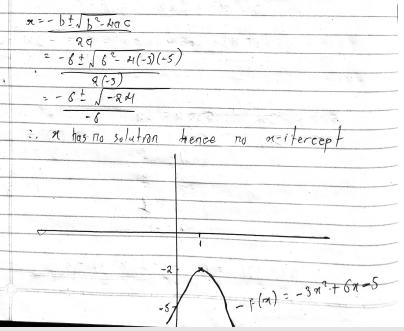 x = -b ± √b² - 4ac
2a
= -6 ± √6² - 4(-3)(-5)
2(-3)
= -6 ± √-24
-6
∴ x has no solution hence no x-itercept
1
-2
-5
- f(x) = -3x² + 6x - 5